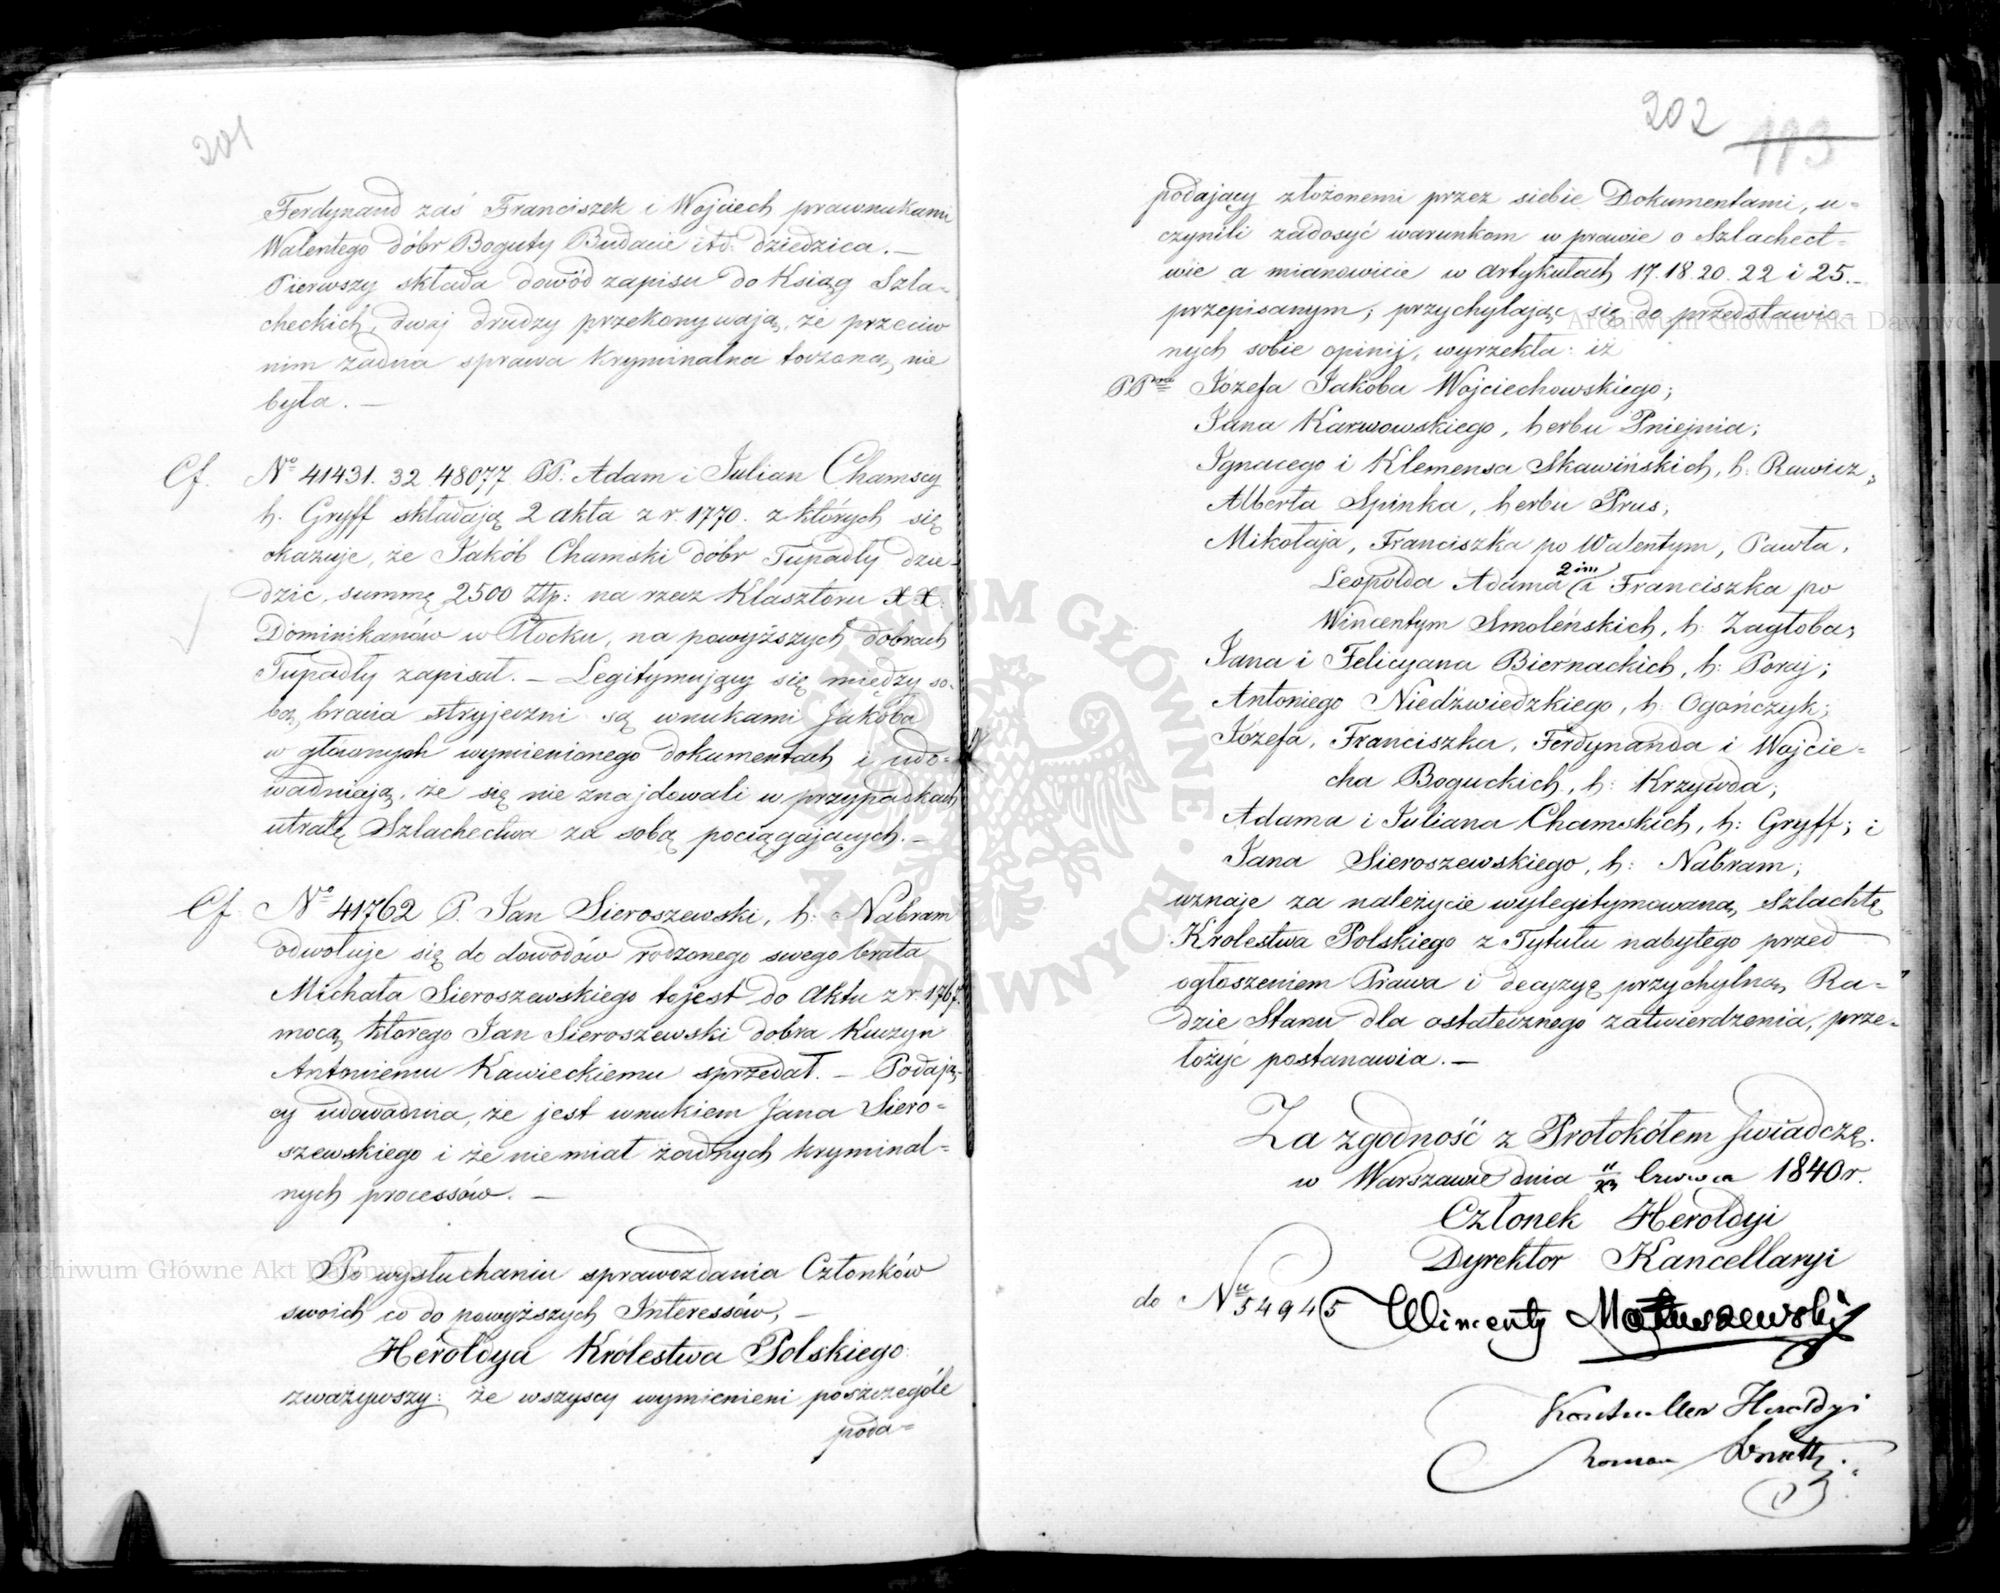 201
Ferdynand zaś Franciszek i Wojciech prawnukami
Walentego dóbr Boguty Budacie itd: dziedzica. —
Pierwszy składa dowód zapisu do Ksiąg Szla-
checkich, dwaj drudzy przekonywają, że przeciw
nim żadna sprawa kryminalna toczoną nie
była. —
Cf. No 41431. 32 48077 PP. Adam i Julian Chamscy
h. Gryff składają 2 akta z r. 1770. z których się
okazuje, że Jakób Chamski dóbr Tupadły dzie-
dzic, summę 2500 złtp: na rzecz Klasztoru XX.
Dominikanów w Płocku, na powyższych dobrach
Tupadły zapisał. — Legitymujący się między so-
bą, bracia stryjeczni są wnukami Jakóba
w głównych wymienionego dokumentach i udo-
wadniają, że się nie znajdowali w przypadkach
utratę Szlachectwa za sobą pociągających. —
Cf. No 41762 P. Jan Sieroszewski, h: Nabram
odwołuje się do dowodów rodzonego swego brata
Michała Sieroszewskiego to jest do Aktu z r. 1767.
mocą którego Jan Sieroszewski dobra Kuczyn
Antoniemu Kawieckiemu sprzedał. — Podają-
cy udowadnia, że jest wnukiem Jana Siero-
szewskiego i że nie miał żadnych kryminal-
nych processów. —
Po wysłuchaniu sprawozdania Członków
swoich co do powyższych Interessów, —
Heroldya Królestwa Polskiego
zważywszy: że wszyscy wymienieni poszczególe
poda-
202 113
podający złożonemi przez siebie Dokumentami, u-
czynili zadosyć warunkom w prawie o Szlachect-
wie a mianowicie w artykułach 17. 18. 20. 22 i 25. —
przepisanym; przychylając się do przedstawio-
nych sobie opinij, wyrzekła: iż
PPnów Józefa Jakóba Wojciechowskiego;
Jana Karwowskiego, herbu Pniejnia;
Ignacego i Klemensa Skawińskich, h: Rawicz;
Alberta Spinka, herbu Prus;
Mikołaja, Franciszka po Walentym, Pawła,
Leopolda Adama 2 im i Franciszka po
Wincentym Smoleńskich, h: Zagłoba;
Jana i Felicyana Biernackich, h: Poraj;
Antoniego Niedźwiedzkiego, h: Ogończyk;
Józefa, Franciszka, Ferdynanda i Wojcie-
cha Boguckich, h: Krzywda;
Adama i Juliana Chamskich, h: Gryff; i
Jana Sieroszewskiego, h: Nabram;
uznaje za należycie wylegitymowaną Szlachtę
Królestwa Polskiego z Tytułu nabytego przed
ogłoszeniem Prawa i decyzyę przychylną, Ra-
dzie Stanu dla ostatecznego zatwierdzenia, prze-
łożyć postanawia. —
Za zgodność z Protokółem świadczę.
w Warszawie dnia 11/23 Czerwca 1840 r.
Członek Heroldyi
Dyrektor Kancellaryi
do No 54945 Wincenty Matuszewski
Kontroller Heroldyi
Roman
Archiwum Główne Akt Dawnych
Archiwum Główne Akt Dawnych
ARCHIWUM GŁÓWNE · AKT DAWNYCH ·